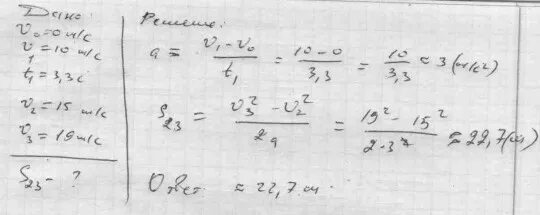 Дано:
v₀=0 м/с
v₁=10 м/с
t₁=3,3с
v₂=15 м/с
v₃=19м/с
S₂₃ - ?
Решение:
a = (v₁-v₀)/t₁ = (10-0)/3,3 = 10/3,3 ≈ 3 (м/с²)
S₂₃ = (v₃² - v₂²)/2a = (19² - 15²)/2·3 ≈ 22,7(м)
Ответ ≈ 22,7 м.